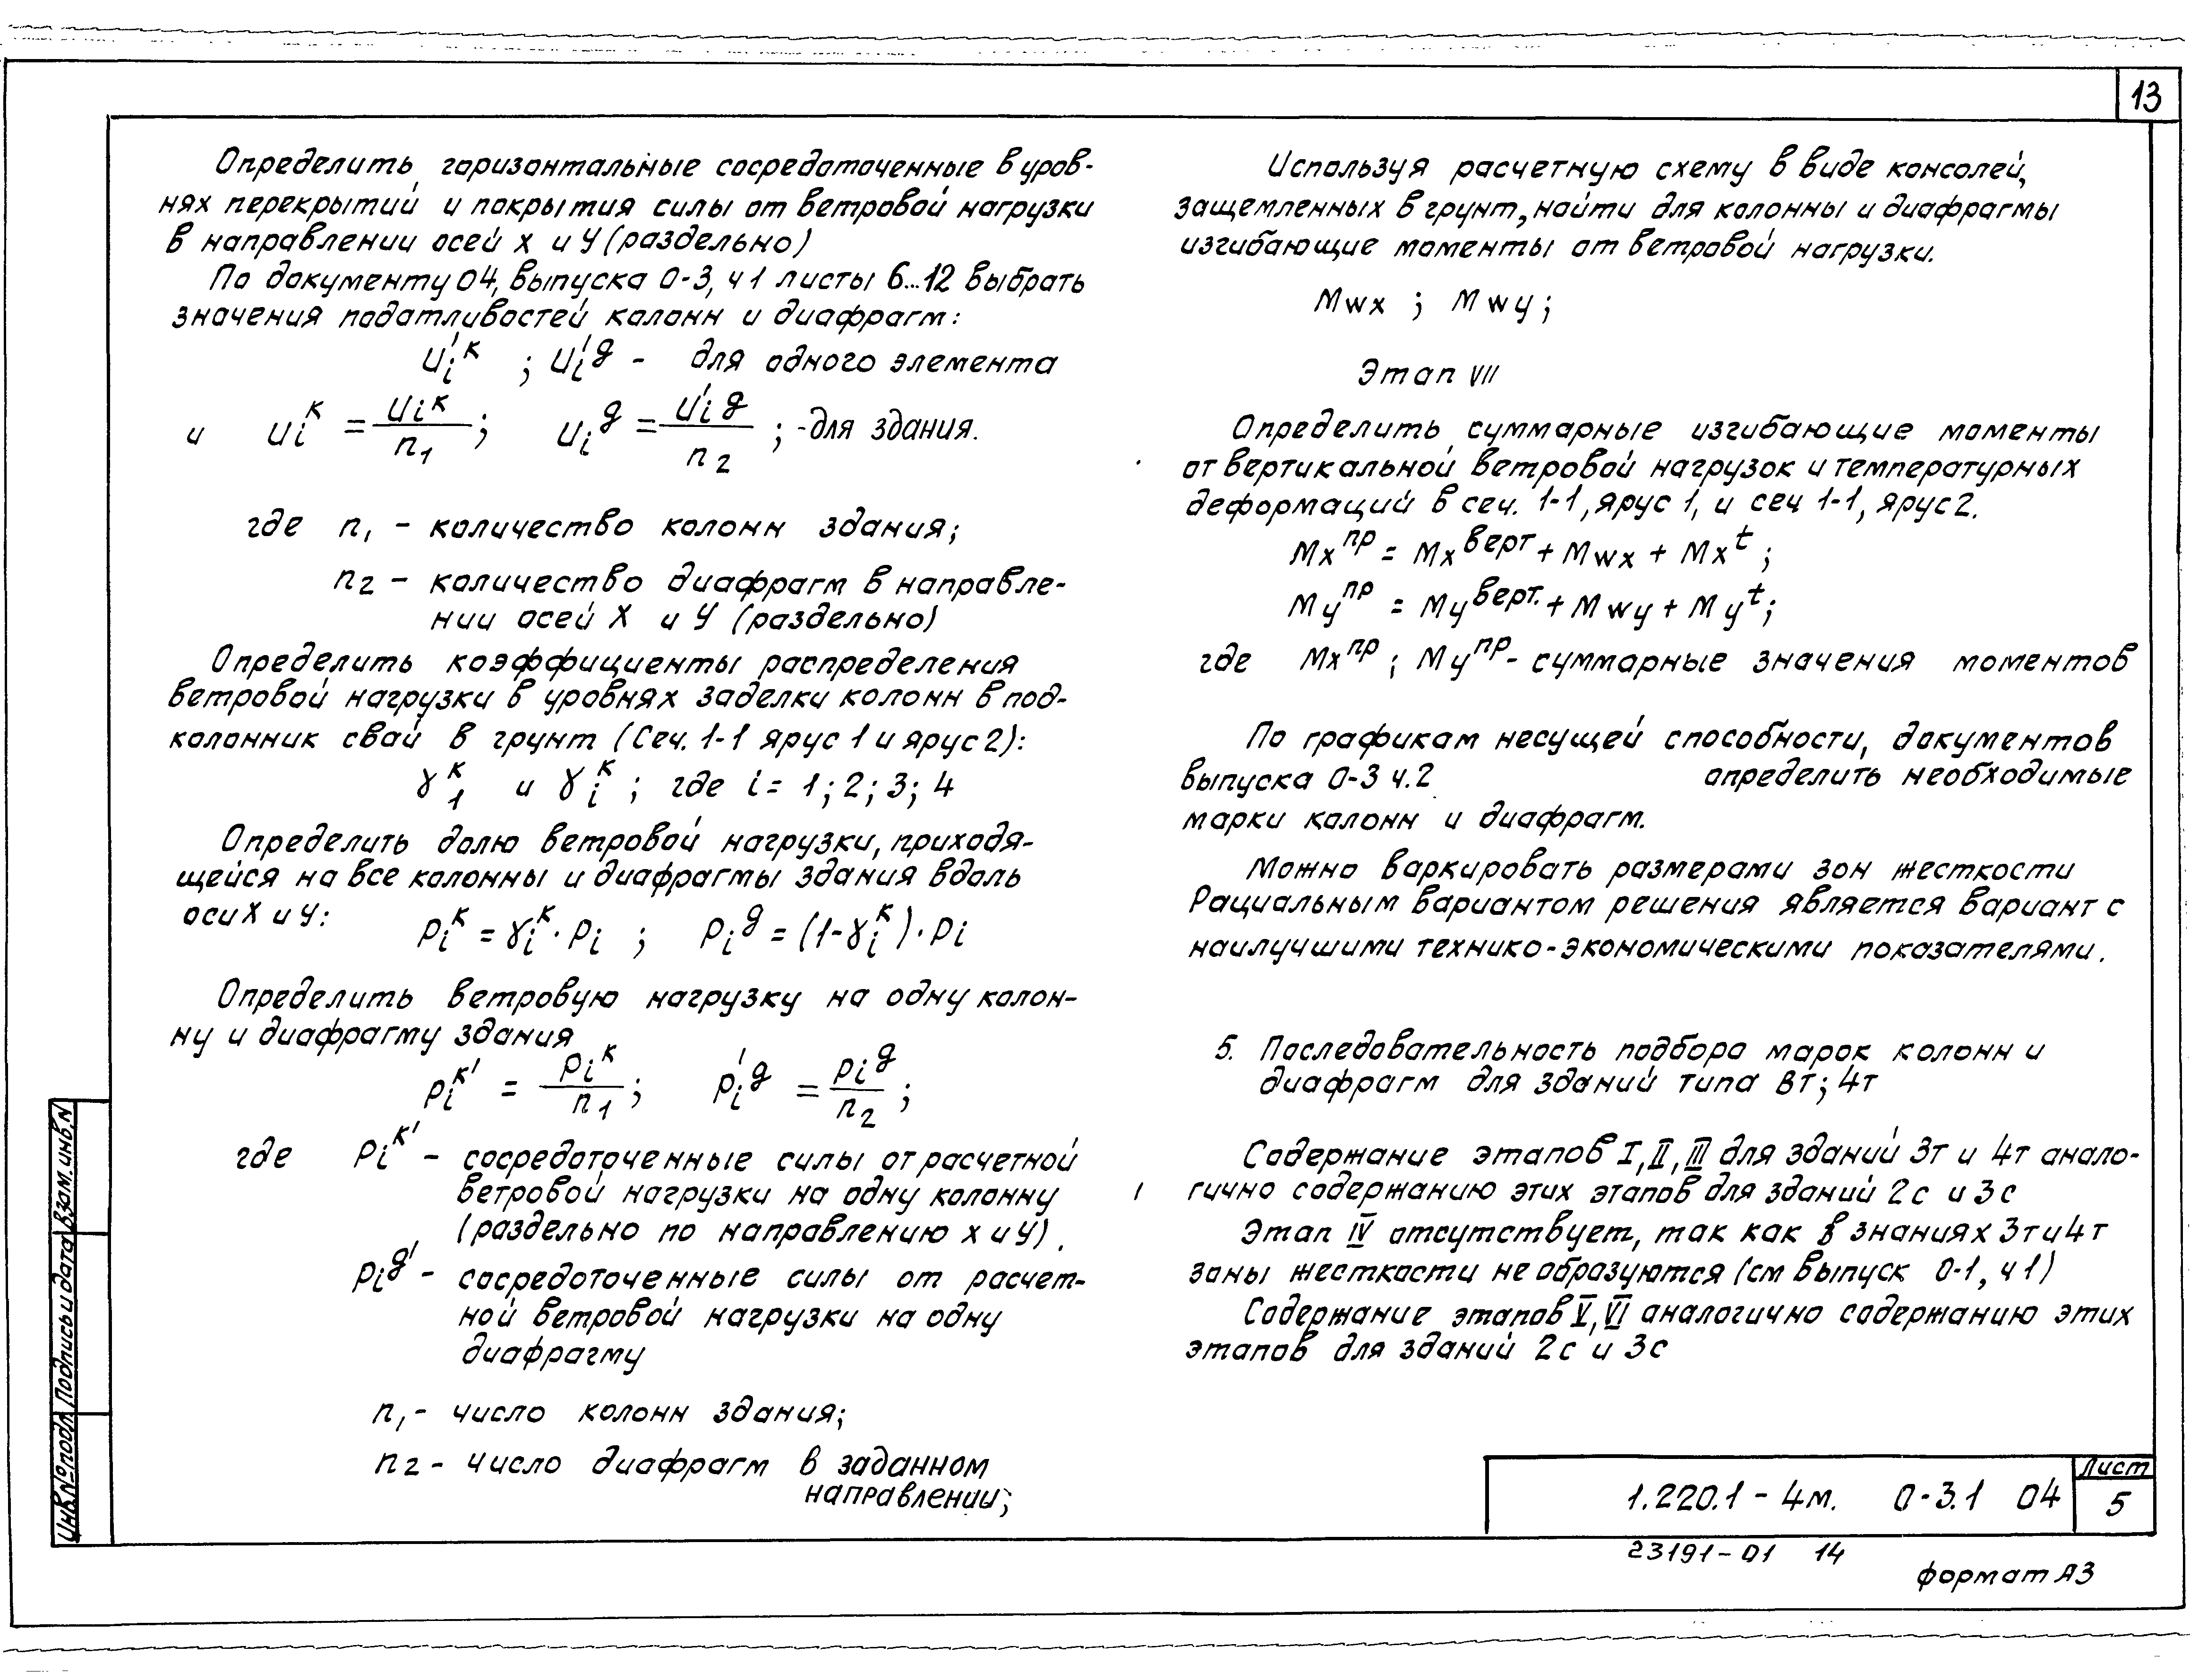 13
Определить горизонтальные сосредоточенные в уров-
нях перекрытий и покрытия силы от ветровой нагрузки
в направлении осей X и У (раздельно)
По документу 04, выпуска 0-3, ч 1 листы 6...12 выбрать
значения податливостей колонн и диафрагм:
u'iᵏ ; u'iᵍ - для одного элемента
и uiᵏ = uiᵏ/n1; uiᵍ = u'iᵍ/n2 ; - для здания.
где n1 - количество колонн здания;
n2 - количество диафрагм в направле-
нии осей X и У (раздельно)
Определить коэффициенты распределения
ветровой нагрузки в уровнях заделки колонн в под-
колонник свай в грунт (Сеч. 1-1 ярус 1 и ярус 2):
γ1ᵏ и γiᵏ ; где i = 1; 2; 3; 4
Определить долю ветровой нагрузки, приходя-
щейся на все колонны и диафрагмы здания вдоль
оси X и У:
Piᵏ = γiᵏ · Pi ; Piᵍ = (1-γiᵏ) · Pi
Определить ветровую нагрузку на одну колон-
ну и диафрагму здания
Piᵏ' = Piᵏ/n1; P'iᵍ = Piᵍ/n2;
где Piᵏ' - сосредоточенные силы от расчетной
ветровой нагрузки на одну колонну
(раздельно по направлению X и У).
Piᵍ' - сосредоточенные силы от расчет-
ной ветровой нагрузки на одну
диафрагму
n1 - число колонн здания;
n2 - число диафрагм в заданном
направлении;
Используя расчетную схему в виде консолей,
защемленных в грунт, найти для колонны и диафрагмы
изгибающие моменты от ветровой нагрузки.
Mwx ; Mwy;
Этап VII
Определить суммарные изгибающие моменты
от вертикальной ветровой нагрузок и температурных
деформаций в сеч. 1-1, ярус 1, и сеч 1-1, ярус 2.
Mxᵖᵖ = Mxверт + Mwx + Mxᵗ;
Myпр = Myверт. + Mwy + Myᵗ;
где Mxпр ; Myпр - суммарные значения моментов
По графикам несущей способности, документов
выпуска 0-3 ч.2 определить необходимые
марки колонн и диафрагм.
Можно варкировать размерами зон жесткости
Рациальным вариантом решения является вариант с
наилучшими технико-экономическими показателями.
5. Последовательность подбора марок колонн и
диафрагм для зданий типа 3т; 4т
Содержание этапов I, II, III для зданий 3т и 4т анало-
гично содержанию этих этапов для зданий 2с и 3с
Этап IV отсутствует, так как в знаниях 3т и 4т
зоны жесткости не образуются (см выпуск 0-1, ч 1)
Содержание этапов V, VI аналогично содержанию этих
этапов для зданий 2с и 3с
Инв.№подл. Подпись и дата Взам.инв.N
1.220.1 - 4м. 0-3.1 04
Лист
5
23191-01 14
формат А3